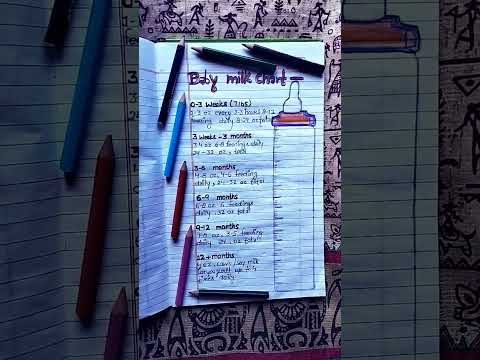 Baby milk chart
0-3 weeks (7 lbs)
1-3 oz every 2-3 hours 8-12
feeding daily 8-24 oz total
3 weeks - 3 months
3-4 oz 6-8 feedings daily
24-32 oz, total
3-6 months
4-8 oz, 4-6 feeding
daily, 24-32 oz total
6-9 months
6-8 oz 6 feedings
daily 32 oz total
9-12 months
7-8 oz, 3-5 feeding
daily 24 oz total
12+ months
cow's / soy milk
up to 4
times daily